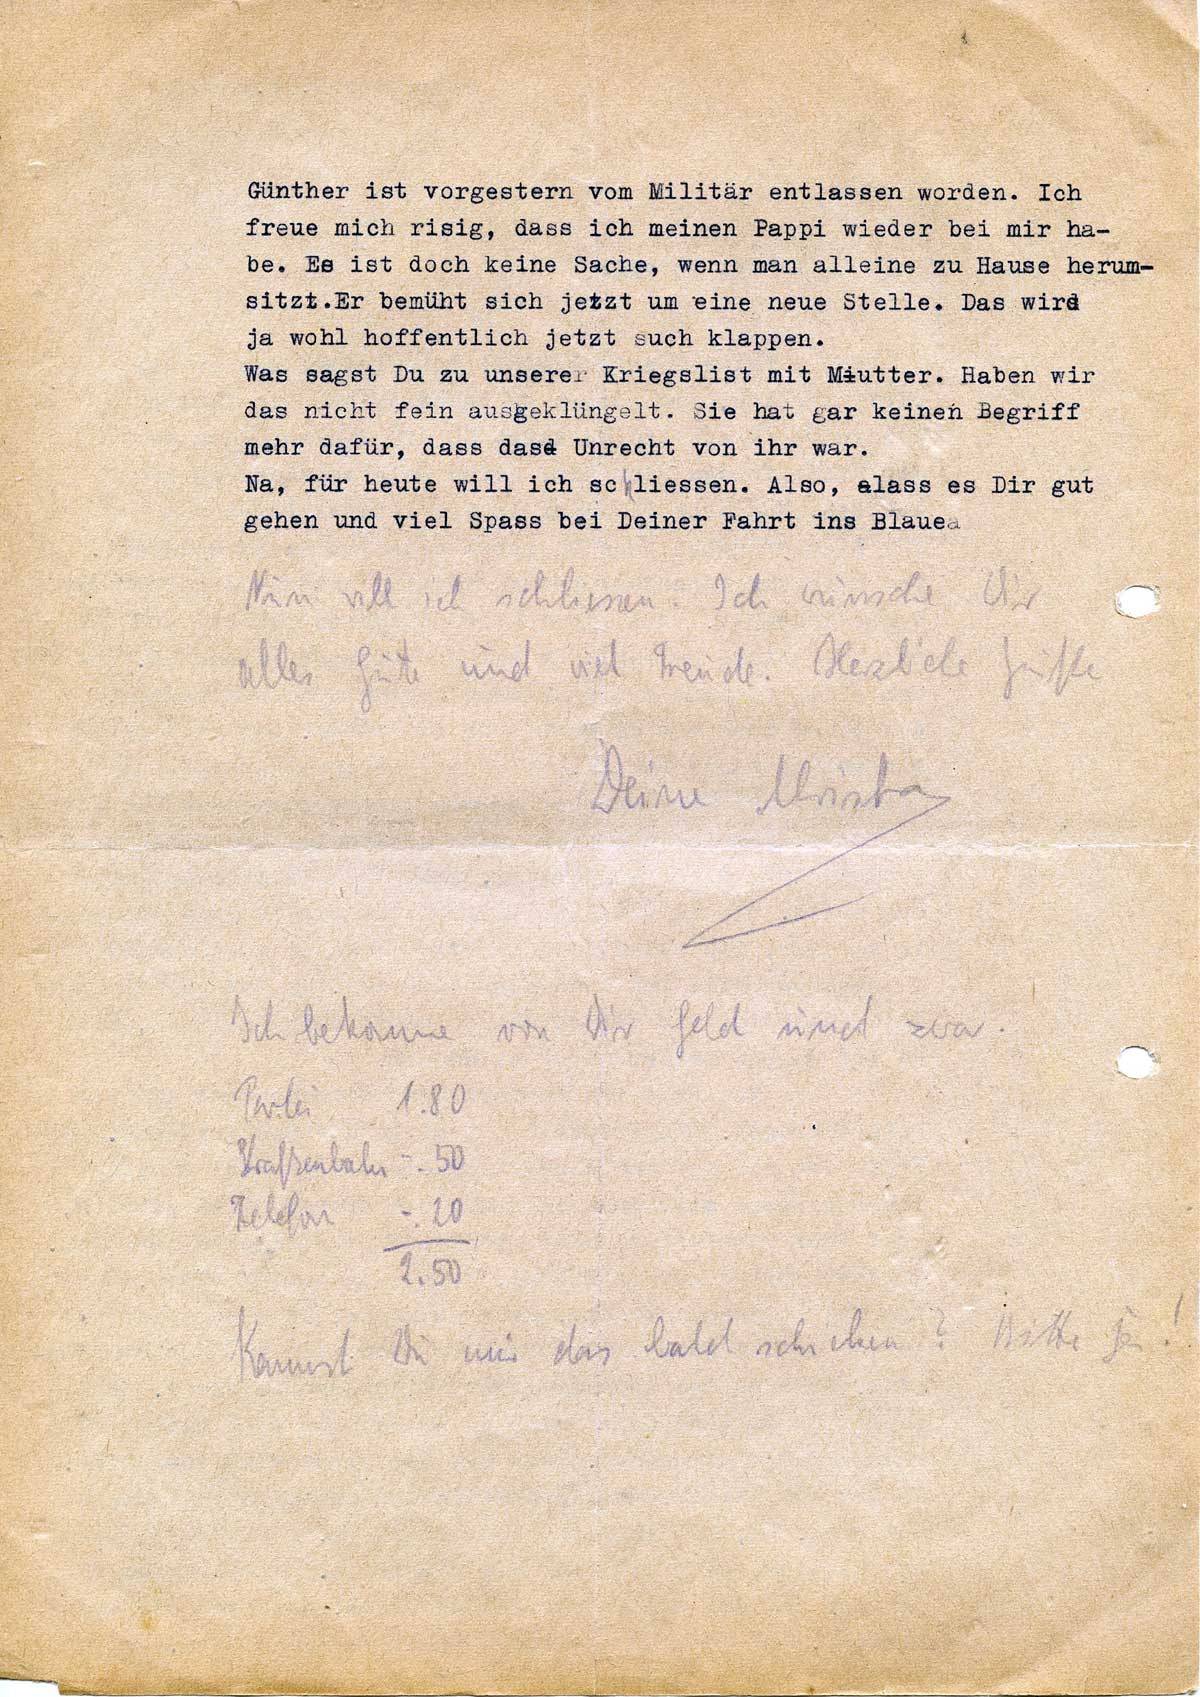 Günther ist vorgestern vom Militär entlassen worden. Ich
freue mich risig, dass ich meinen Pappi wieder bei mir ha-
be. Es ist doch keine Sache, wenn man alleine zu Hause herum-
sitzt.Er bemüht sich jetzt um eine neue Stelle. Das wird
ja wohl hoffentlich jetzt such klappen.
Was sagst Du zu unserer Kriegslist mit Miutter. Haben wir
das nicht fein ausgeklüngelt. Sie hat gar keinen Begriff
mehr dafür, dass dasd Unrecht von ihr war.
Na, für heute will ich schliessen. Also, alass es Dir gut
gehen und viel Spass bei Deiner Fahrt ins Blaue
Nun will ich schliessen. Ich wünsche Dir
alles Gute und viel Freude. Herzliche Grüße
Deine
Ich bekomme von Dir Geld und zwar.
Partei 1.80
Straßenbahn -.50
Telefon -.20
2.50
Kannst Du mir das bald schicken? Bitte ja!